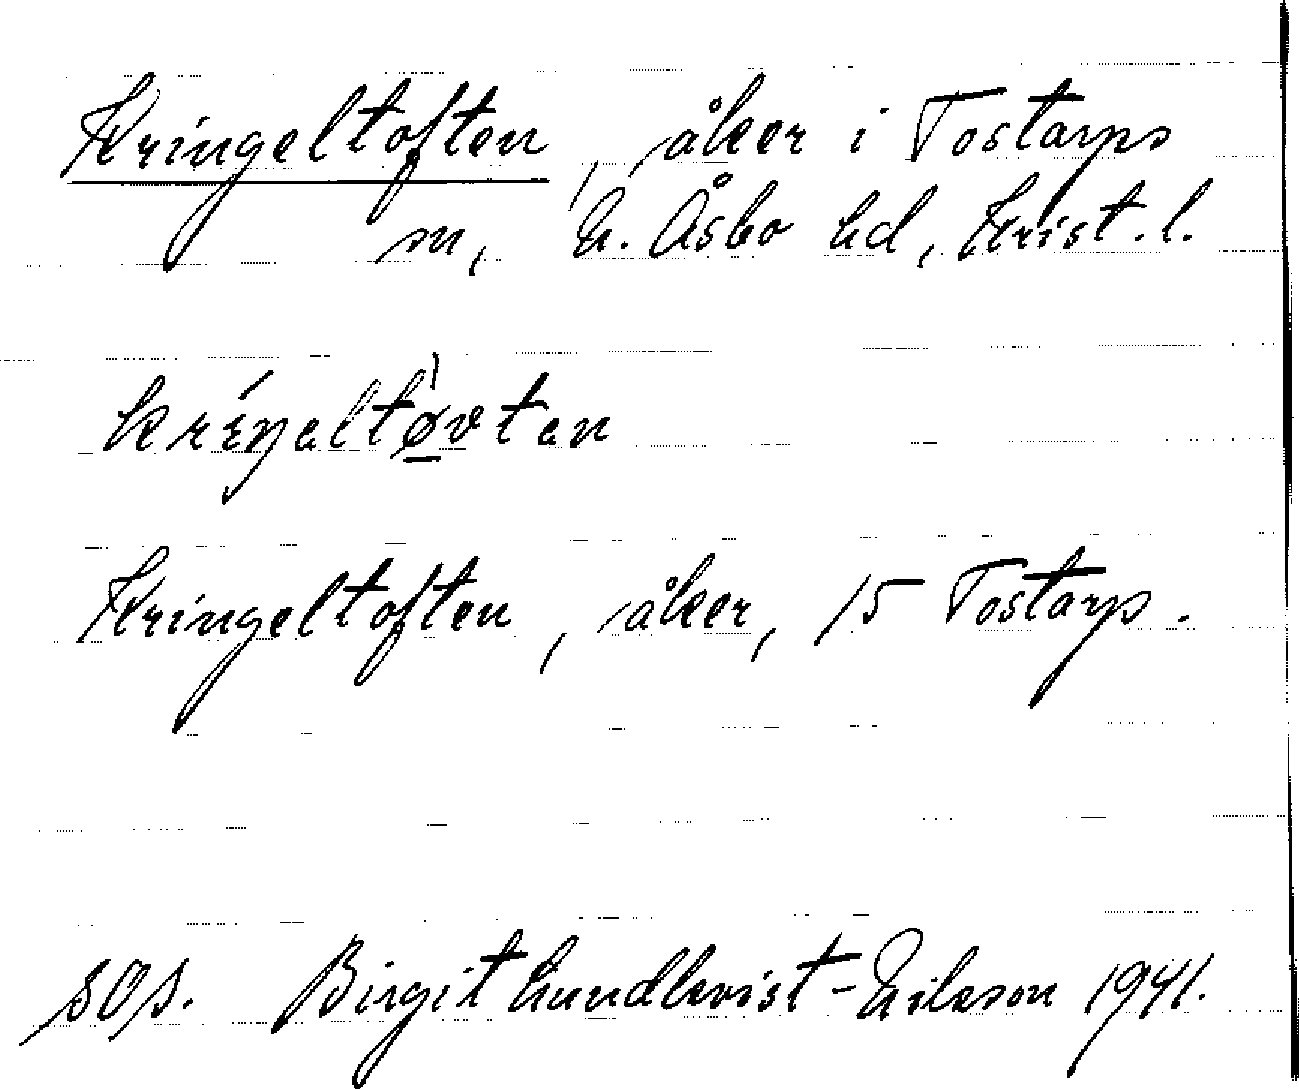 Kringeltoften, åker i Tostarps
sn, N. Åsbo hd, Krist. l.
kriŋəltøvtən
Kringeltoften, åker, 15 Tostarp.
Birgit Lundkvist-Nilsson 1941.